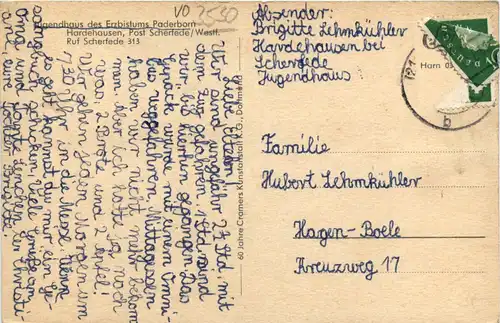 V0 2530
Jugendhaus des Erzbistums Paderborn
Hardehausen, Post Scherfede/Westf.
Ruf Scherfede 313
Liebe Eltern!
Wir sind ungefähr 2 ½ Std mit
dem Zug gefahren. 1 Std sind
wir bis hierhin gegangen. Das
Gepäck wurde mit einem Omni-
bus weggefahren. Mittagessen
haben wir nicht mehr bekom
men. Aber ich hatte ja noch
was 2 Brote und 2 Äpfel!
Wir gehen jeden Morgen um
7 30 Uhr in die Messe. Wenn
es geht kannst du mir ein Ge-
sangbuch schicken. Viele Grüße an
Oma und Tante Lenchen
eure Tochter Brigitte!
60 Jahre Cramers Kunstanstalt K.G., Dortmund
Absender:
Brigitte Lehmkühler
Hardehausen bei
Scherfede
Jugendhaus
Harn
b
Familie
Hubert Lehmkühler
Hagen-Boele
Kreuzweg 17